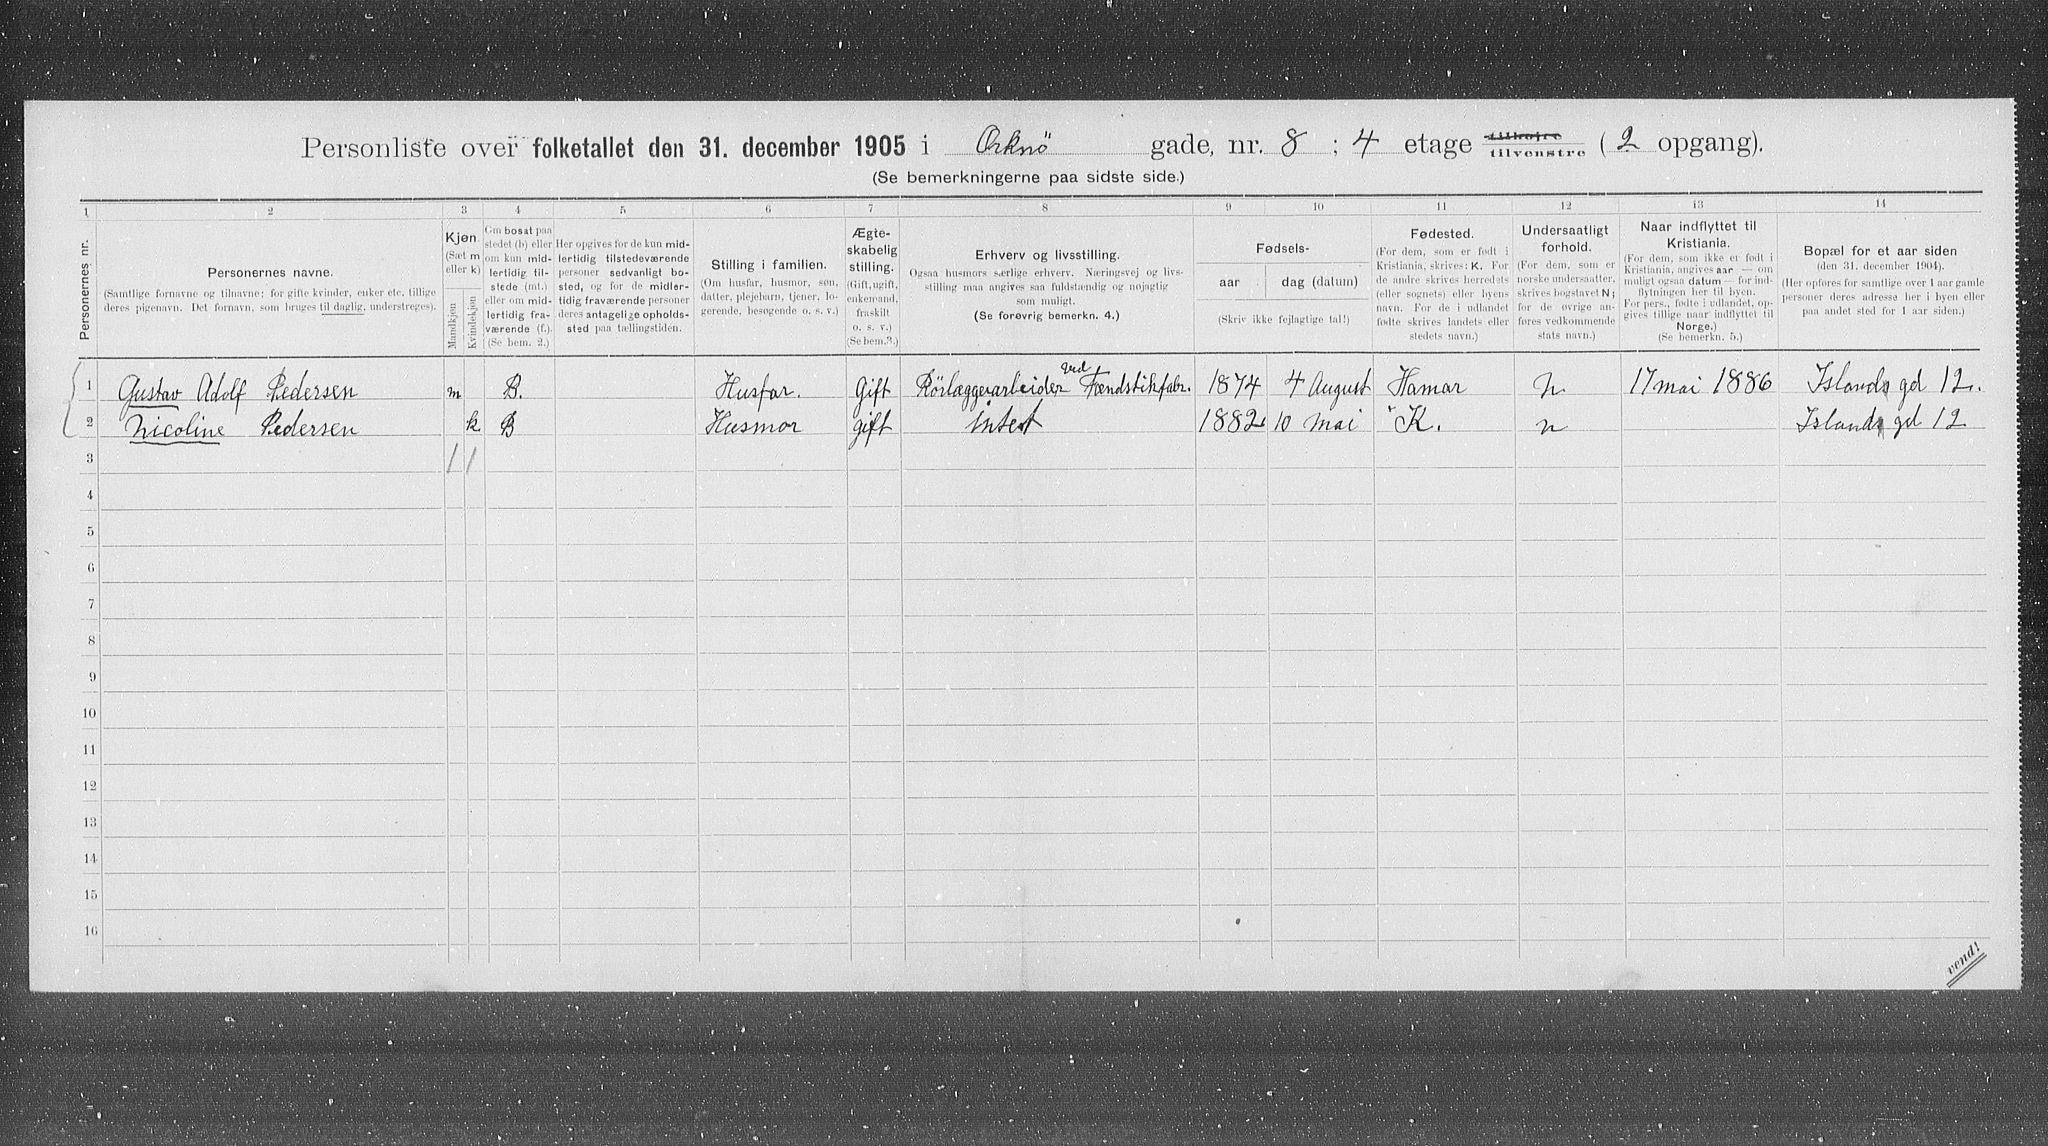 Personliste over folketallet den 31. december 1905 i Orknö gade, nr. 8 ; 4 etage tilhøire tilvenstre ( 2 opgang).
(Se bemerkningerne paa sidste side.)
1 2 3 4 5 6 7 8 9 10 11 12 13 14
Personernes nr.
Personernes navne.
(Samtlige fornavne og tilnavne; for gifte kvinder, enker etc. tillige
deres pigenavn. Det fornavn, som bruges til daglig, understreges).
Kjøn
(Sæt m
eller k)
Mandkjøn
Kvindekjøn
Om bosat paa
stedet (b) eller
om kun mid-
lertidig til-
stede (mt.)
eller om mid-
lertidig fra-
værende (f.).
(Se bem. 2.)
Her opgives for de kun mid-
lertidig tilstedeværende
personer sedvanligt bo-
sted, og for de midler-
tidig fraværende personer
deres antagelige opholds-
sted paa tællingstiden.
Stilling i familien.
(Om husfar, husmor, søn,
datter, plejebarn, tjener, lo-
gerende, besøgende o. s. v.)
Ægte-
skabelig
stilling.
(Gift, ugift,
enkemand,
fraskilt
o. s. v.)
(Se bem.3.)
Erhverv og livsstilling.
Ogsaa husmors særlige erhverv. Næringsvej og livs-
stilling maa angives saa fuldstændig og nøjagtig
som muligt.
(Se forøvrig bemerkn. 4.)
Fødsels-
aar dag (datum)
(Skriv ikke fejlagtige tal!)
Fødested.
(For dem, som er født i
Kristiania, skrives: K. For
de andre skrives herredets
(eller sognets) eller byens
navn. For de i udlandet
fødte skrives landets eller
stedets navn.)
Undersaatligt
forhold.
(For dem, som er
norske undersaatter,
skrives bogstavet N;
for de øvrige an-
føres vedkommende
stats navn.)
Naar indflyttet til
Kristiania.
(For dem, som ikke er født i
Kristiania, angives aar — om
muligt ogsaa datum — for ind-
flytningen her til byen.
For pers., fødte i udlandet, op-
gives tillige naar indflyttet til
Norge.)
(Se bemerkn. 5.)
Bopæl for et aar siden
(den 31. december 1904).
(Her opføres for samtlige over 1 aar gamle
personer deres adresse her i byen eller
paa andet sted for 1 aar siden.)
1 Gustav Adolf Pedersen m B. Husfar. Gift Rörlæggerarbeider ved Fændstikfabr. 1874 4 August Hamar n 17 mai 1886 Islands gd 12.
2 Nicoline Pedersen k B Husmor gift intet 1882 10 mai K. n Islands gd 12
3 1 1
4
5
6
7
8
9
10
11
12
13
14
15
16
vend!